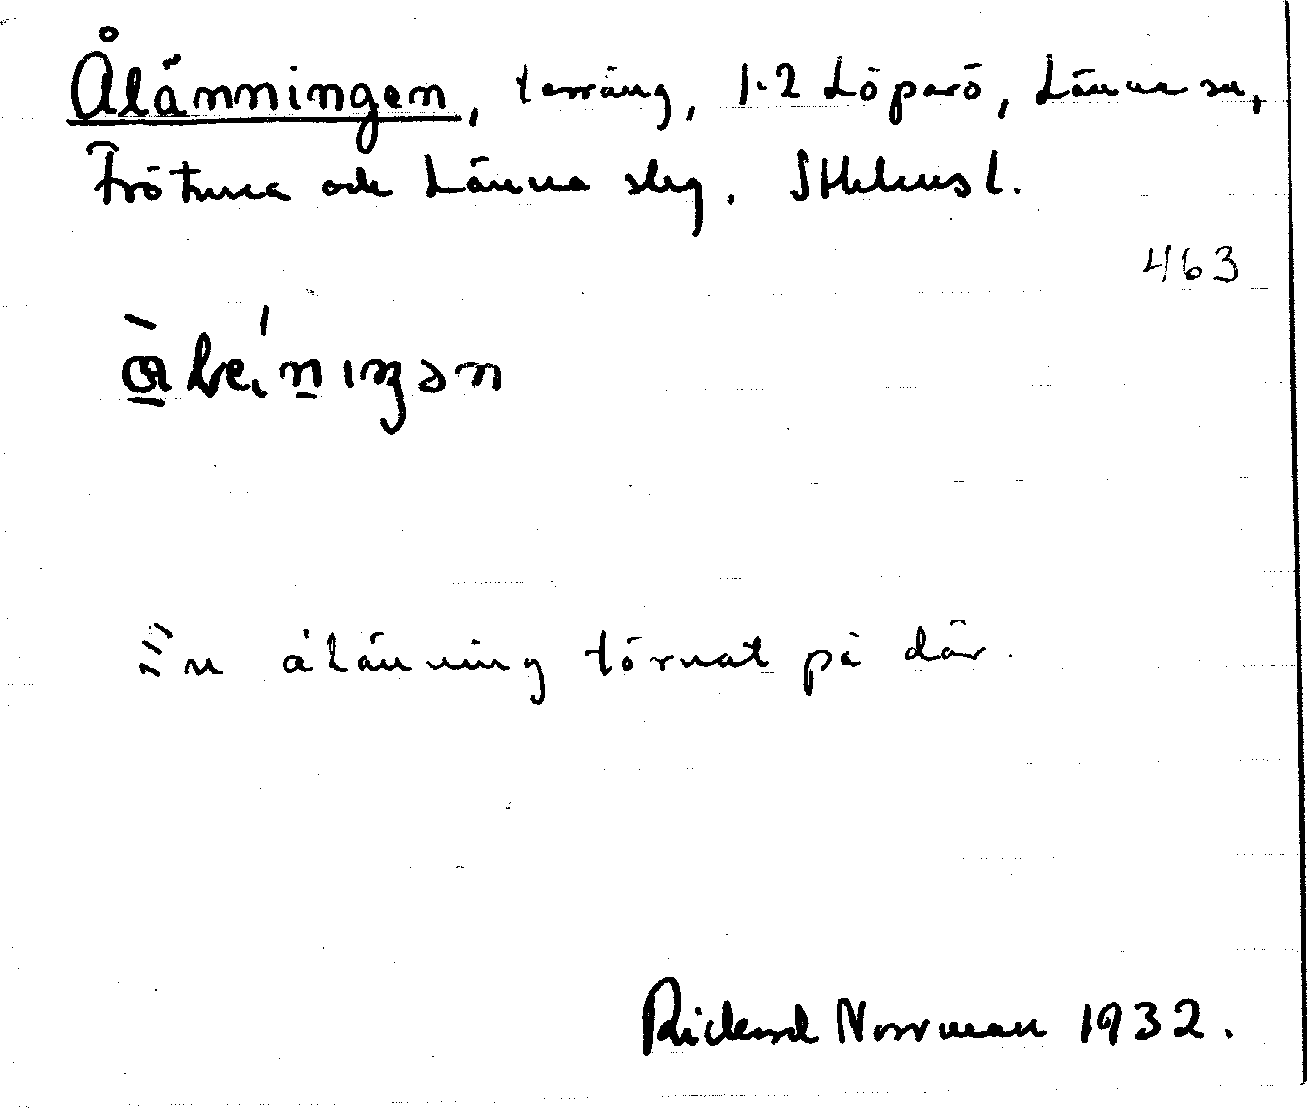 Ålänningen, terräng, 1·2 Löparö, Länna sn,
Frötuna och Länna skg. Sthlms l.
463
En ålänning törnat på där.
Rickard Norrman 1932.